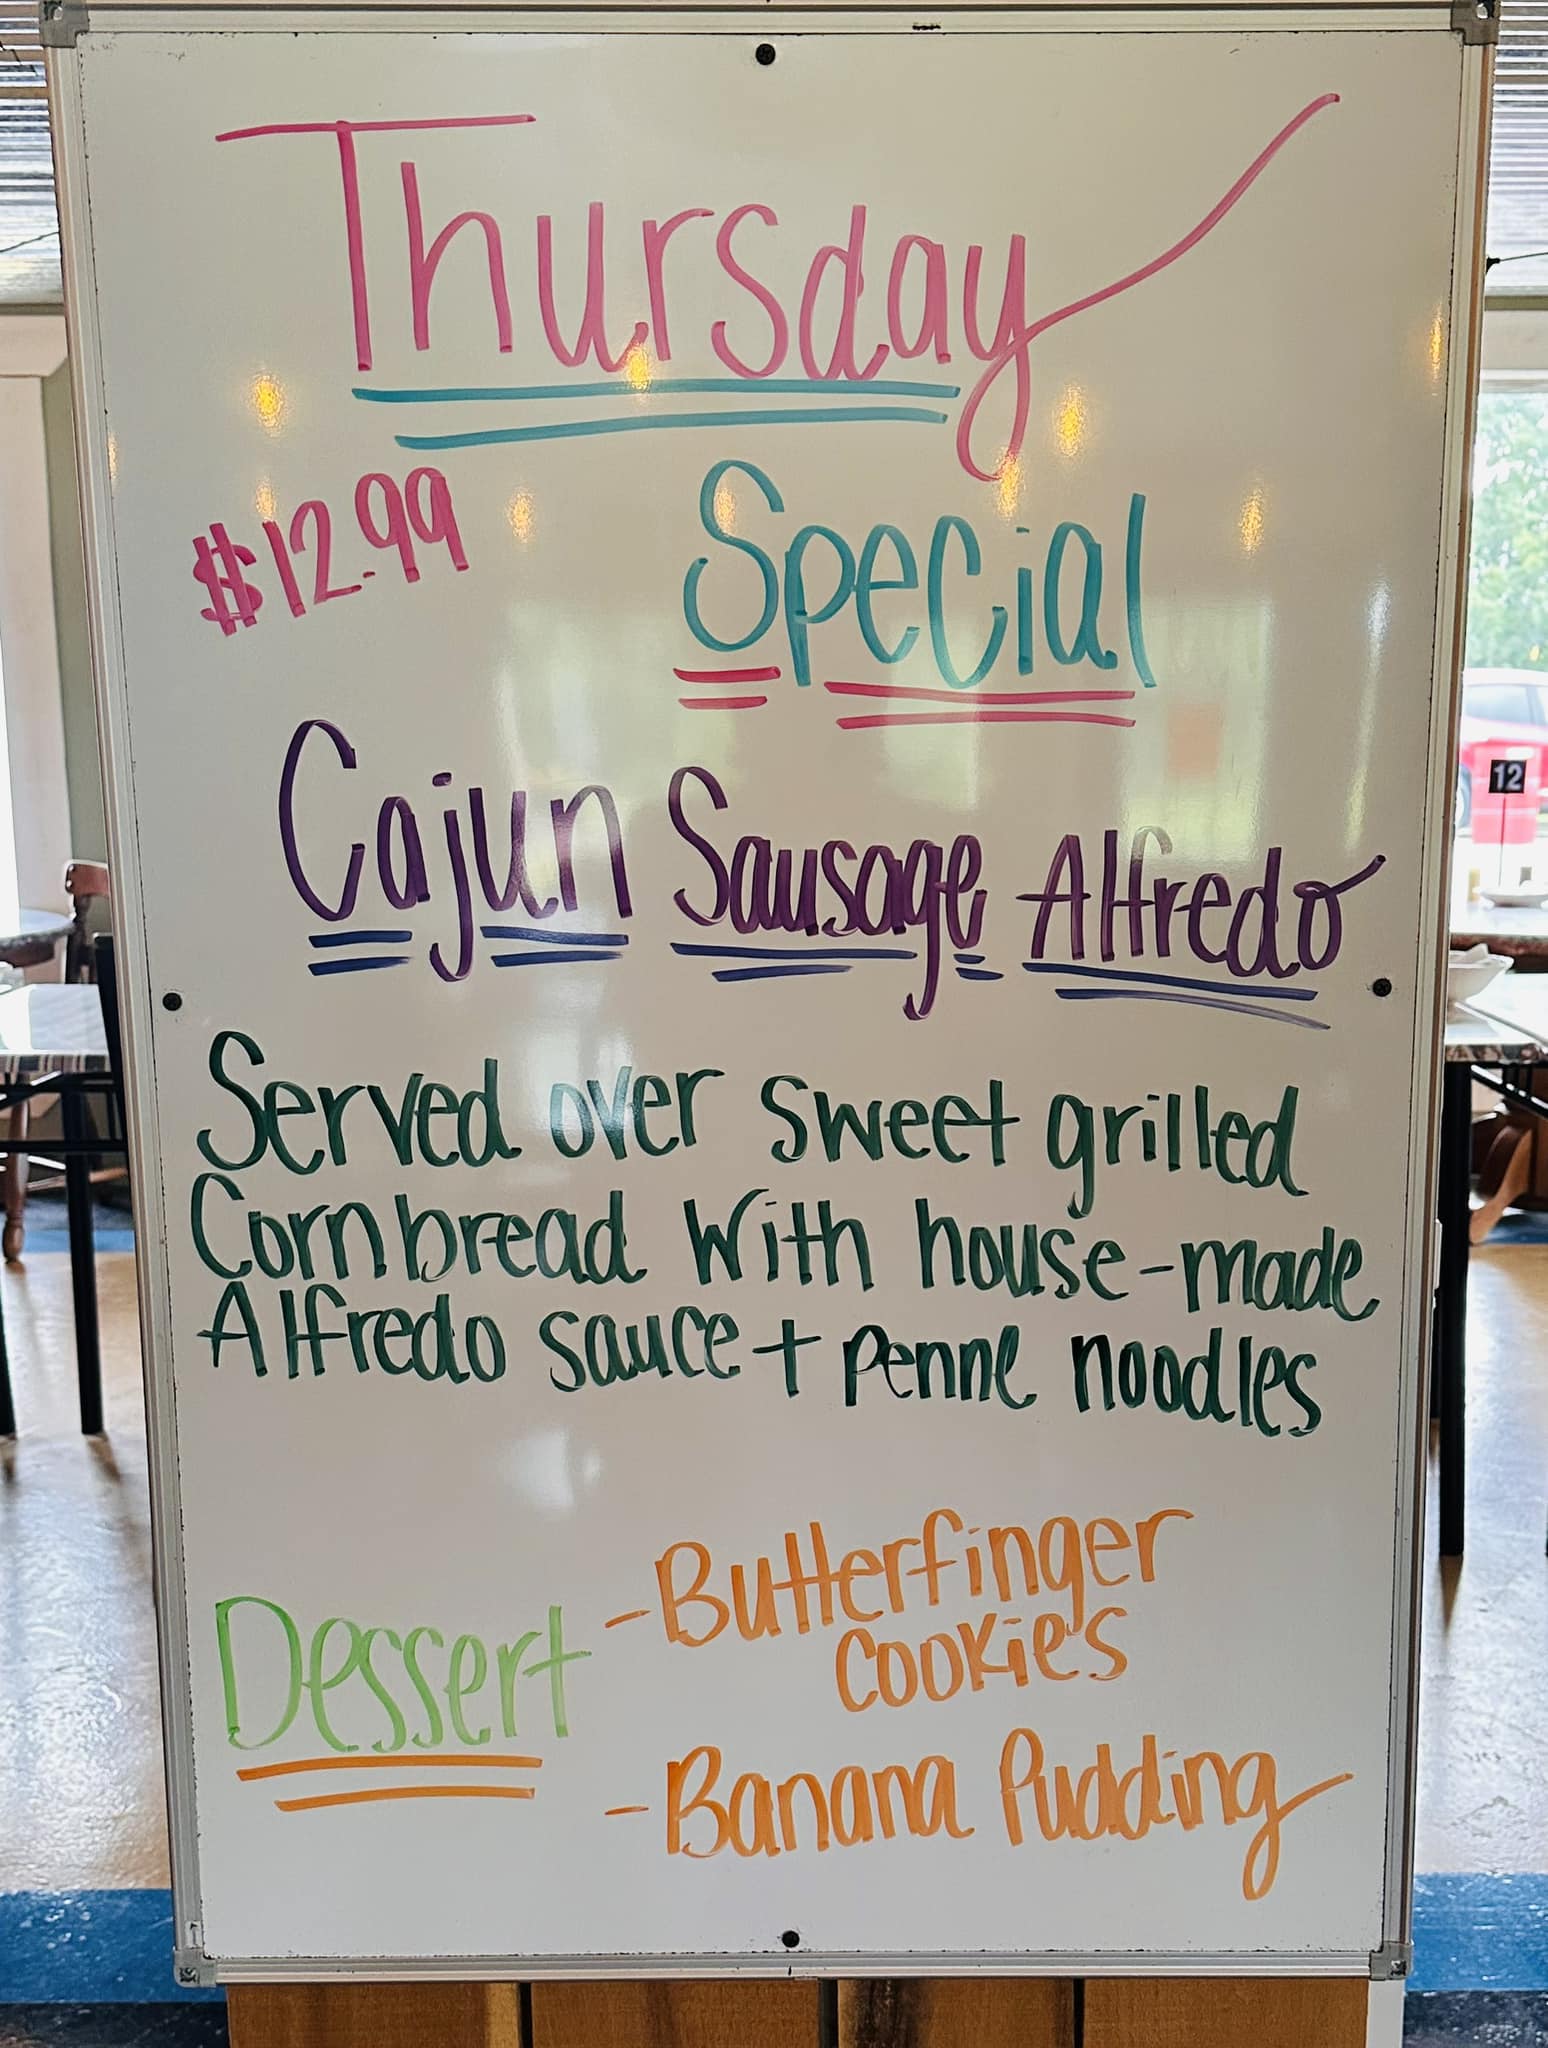 Thursday
$12.99 Special
Cajun Sausage Alfredo
Served over sweet grilled
Cornbread With house-made
Alfredo sauce + penne noodles
Dessert
-Butterfinger
cookies
-Banana Pudding
12